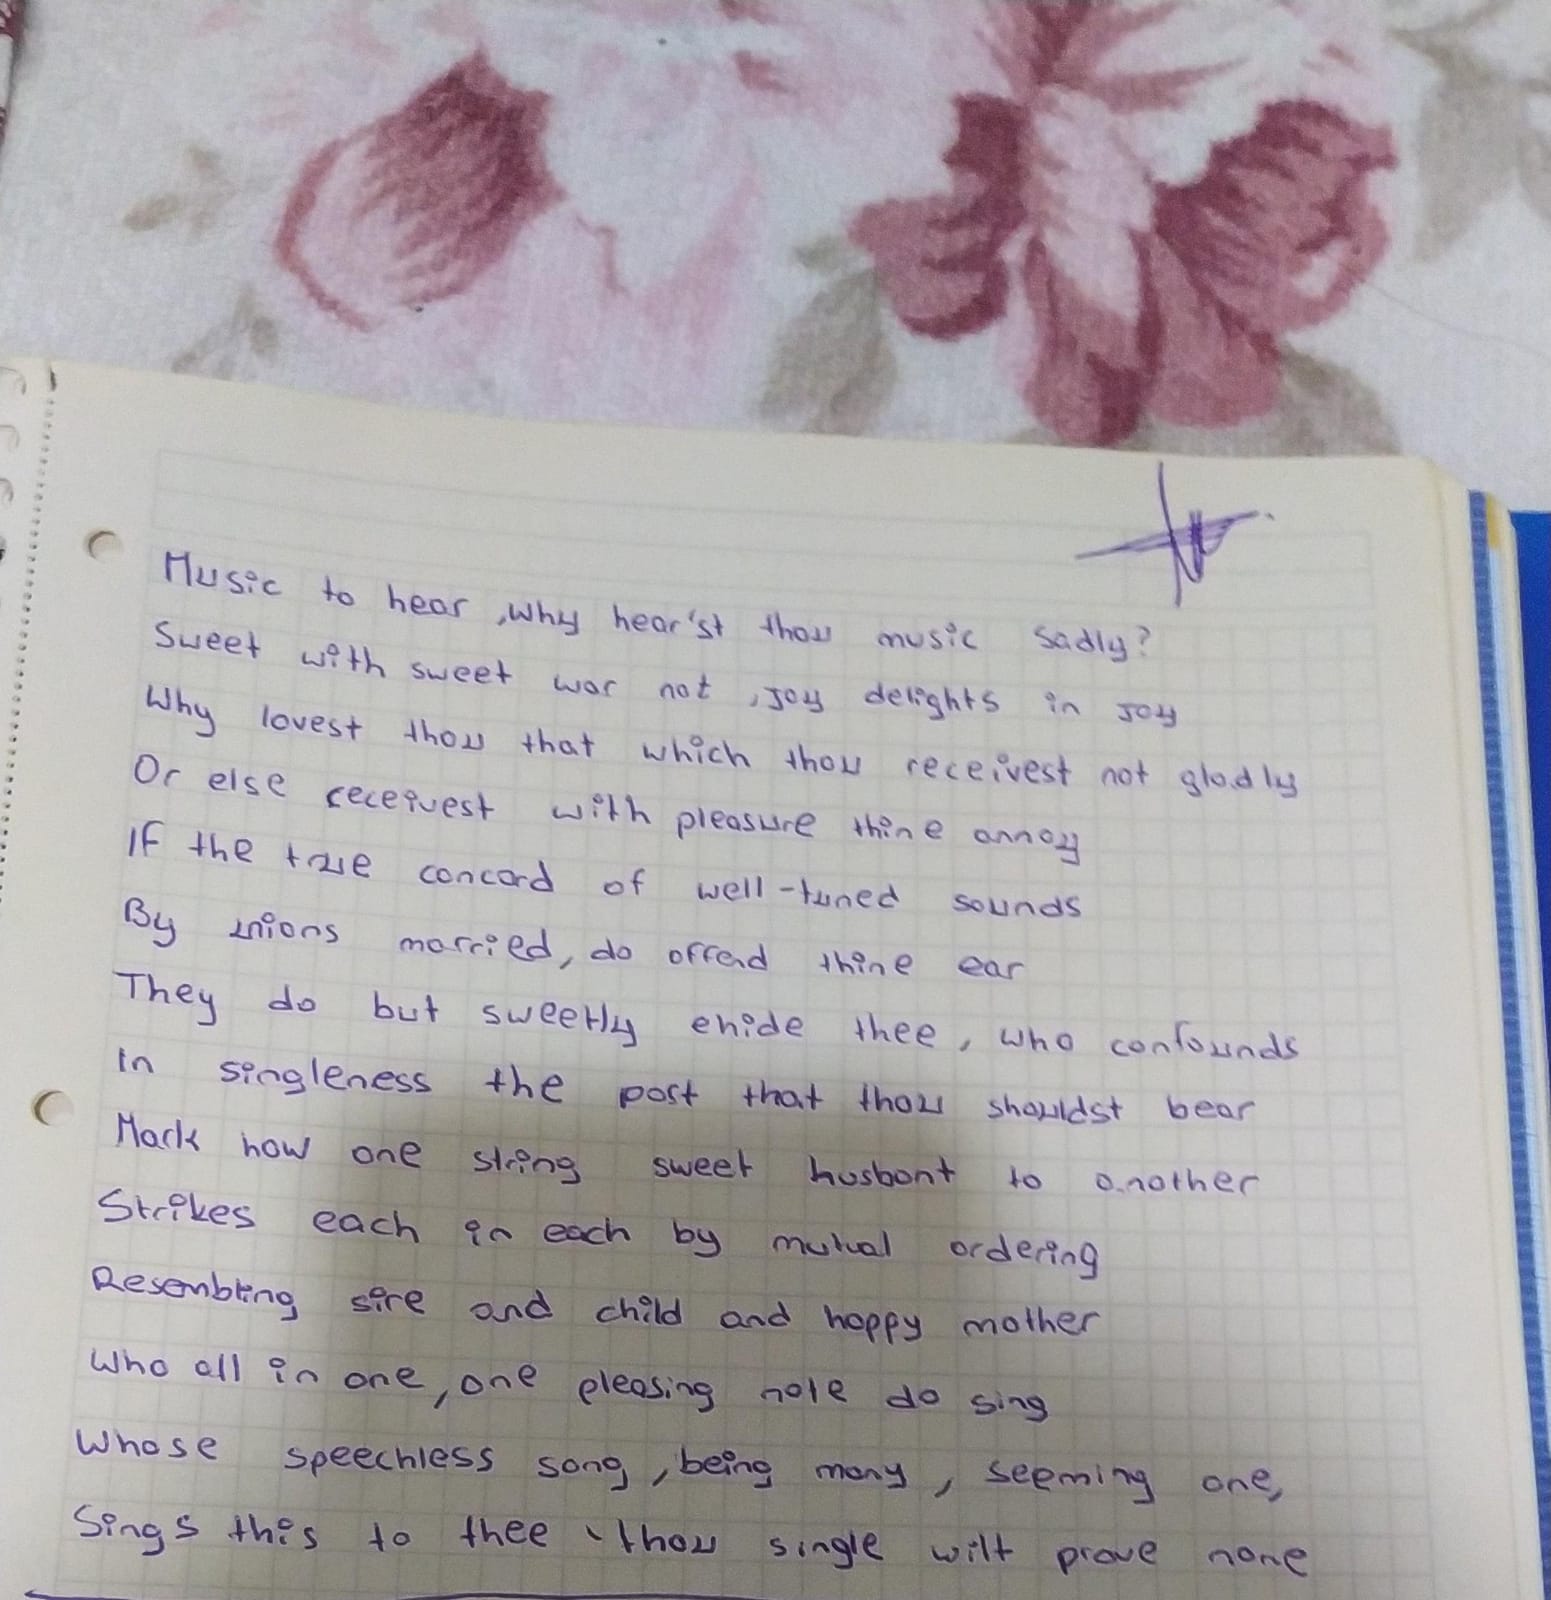 Music to hear, why hear'st thou music sadly?
Sweet with sweet war not, joy delights in joy
Why lovest thou that which thou receivest not gladly
Or else receivest with pleasure thine annoy
If the true concord of well-tuned sounds
By unions married, do offend thine ear
They do but sweetly chide thee, who confounds
In singleness the post that thou shouldst bear
Mark how one string sweet husbont to another
Strikes each in each by mutual ordering
Resembling sire and child and happy mother
Who all in one, one pleasing note do sing
Whose speechless song, being many, seeming one,
Sings this to thee, thou single wilt prove none